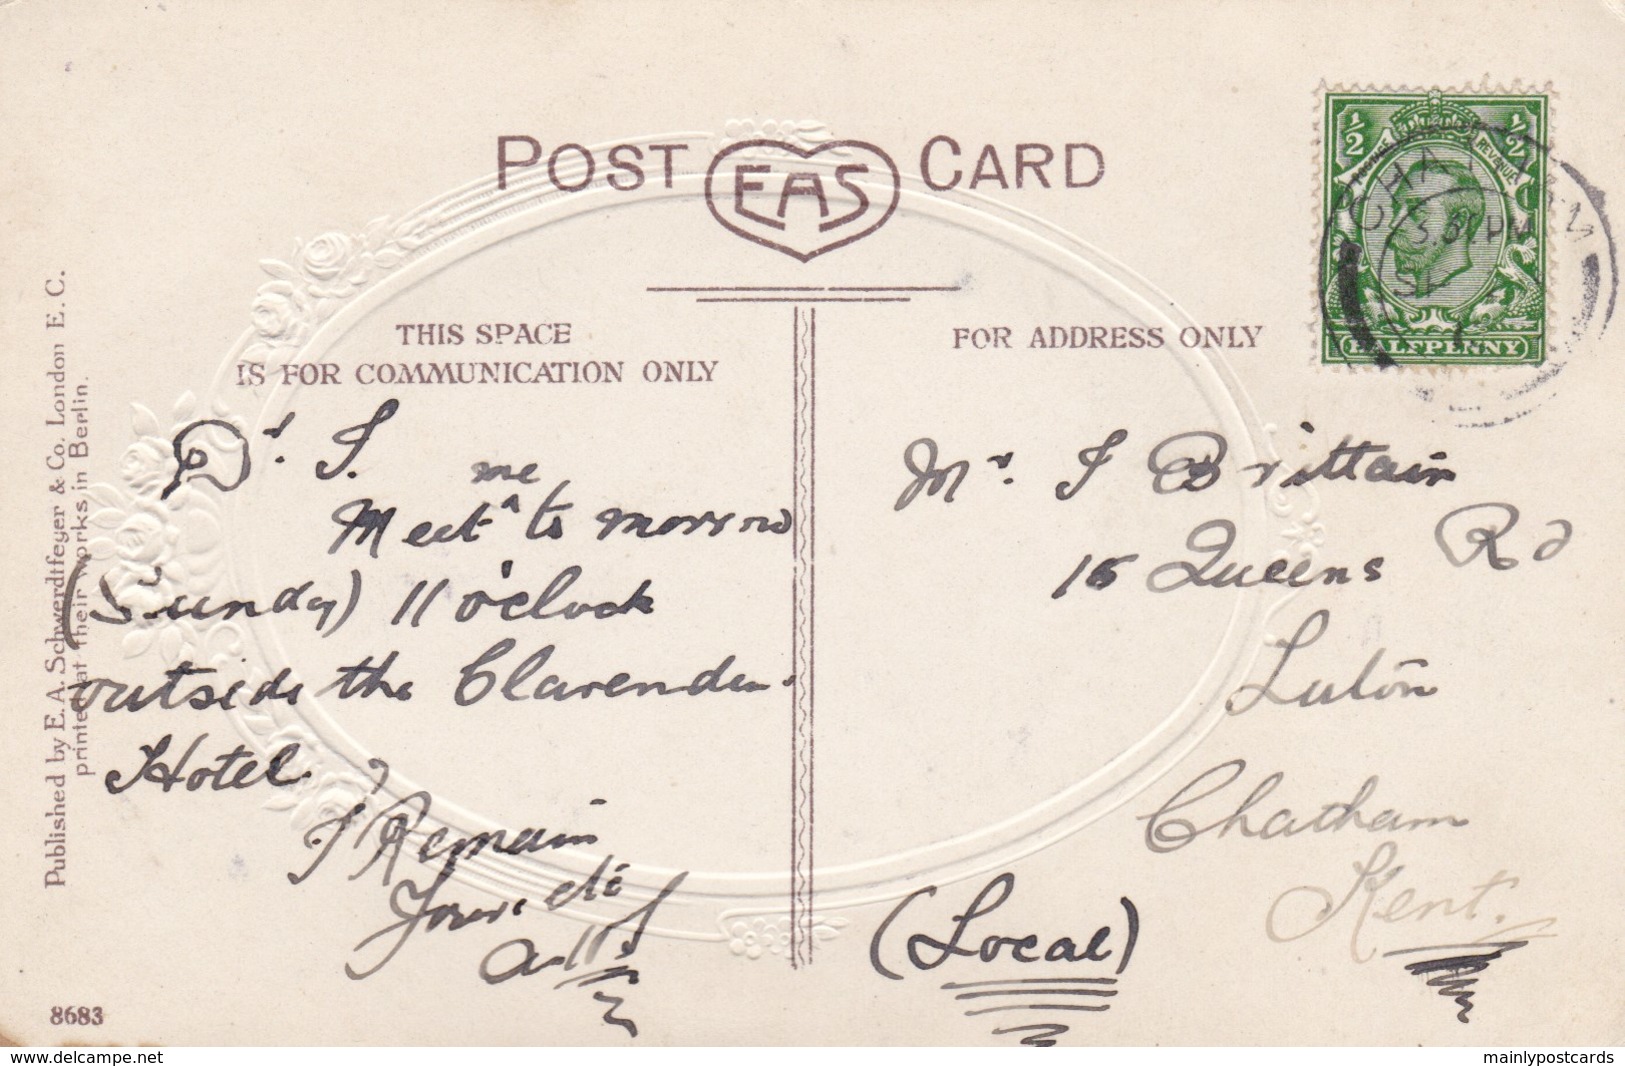 POST EAS CARD
THIS SPACE
IS FOR COMMUNICATION ONLY
FOR ADDRESS ONLY
½ ½
POSTAGE REVENUE
HALFPENNY
CHATHAM
PM
Dr. J.
me
Meet ^ to morrow
(Sunday) 11 o'clock
outside the Clarendon
Hotel
I Remain
Mr. J Brittain
16 Queens Rd
Luton
Chatham
Kent.
(Local)
Published by E. A. Schwerdtfeger & Co. London E. C.
printed at their works in Berlin.
8683
www.delcampe.net
mainlypostcards